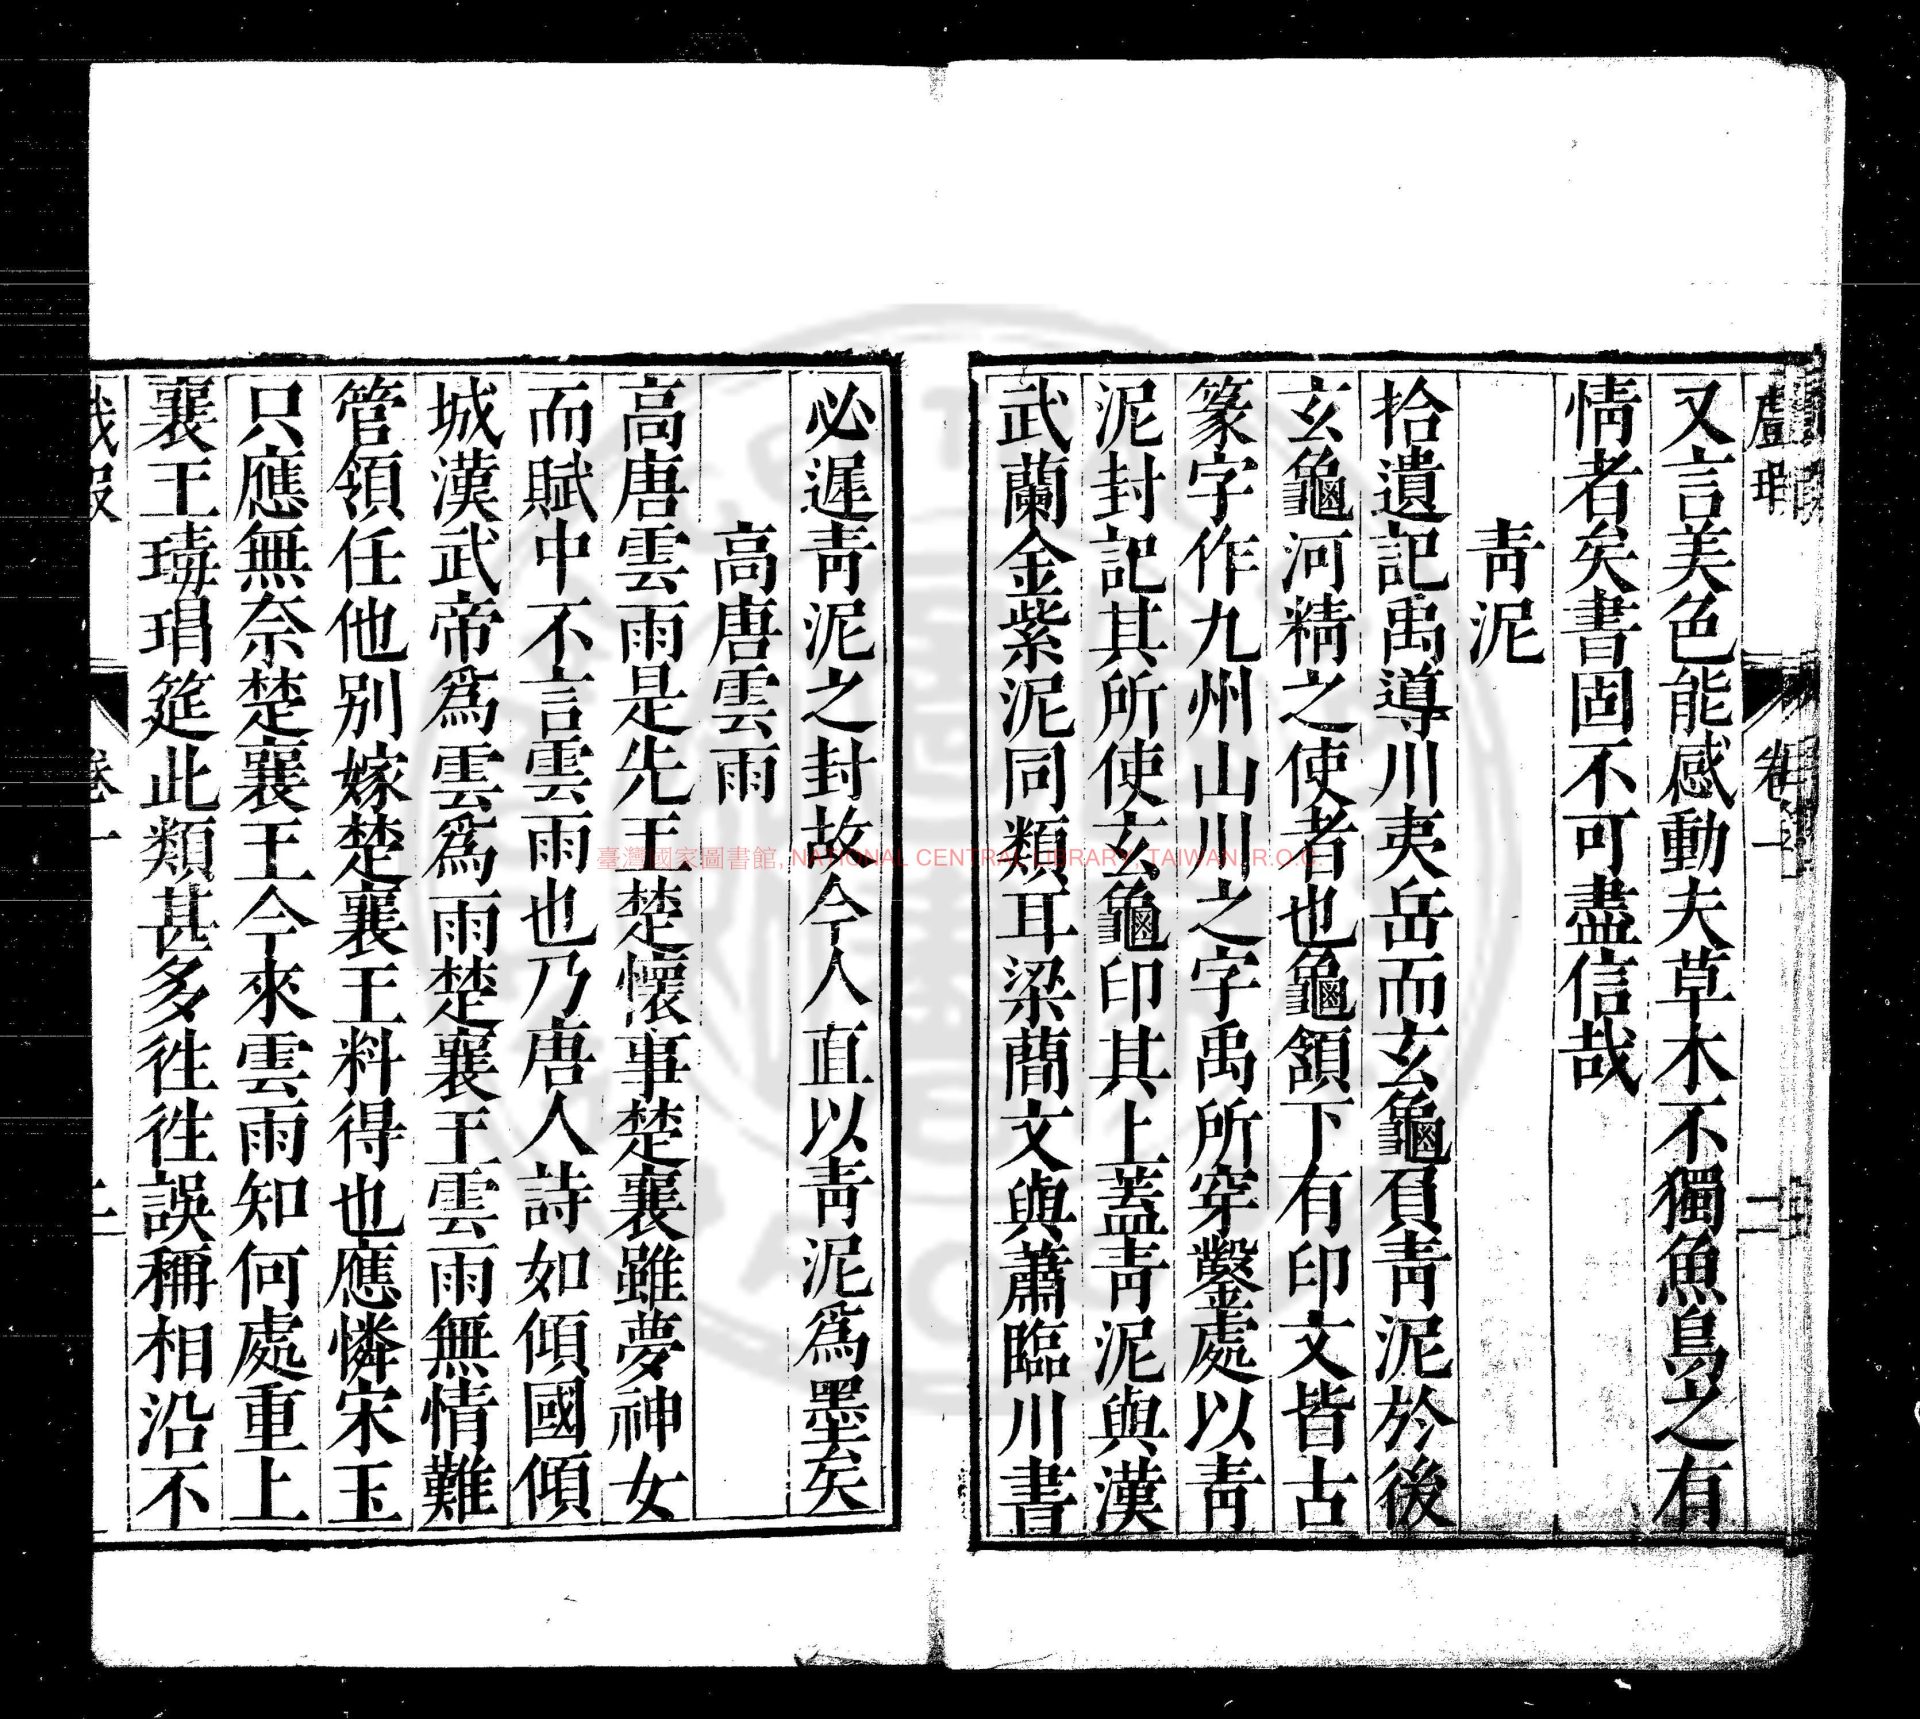 卷一
二
又言美色能感動夫草木不獨魚鳥之有
情者矣書固不可盡信哉
青泥
拾遺記禹導川夷岳而玄龜負青泥於後
玄龜河精之使者也龜頷下有印文皆古
篆字作九州山川之字禹所穿鑿處以青
泥封記其所使玄龜印其上蓋青泥與漢
武蘭金紫泥同類耳梁簡文與蕭臨川書
必遲青泥之封故今人直以青泥爲墨矣
高唐雲雨
高唐雲雨是先王楚懷事楚襄雖夢神女
而賦中不言雲雨也乃唐人詩如傾國傾
城漢武帝爲雲爲雨楚襄王雲雨無情難
管領任他別嫁楚襄王料得也應憐宋玉
只應無奈楚襄王今來雲雨知何處重上
襄王瑇瑁筵此類甚多徃徃誤稱相沿不
卷一
臺灣國家圖書館, NATIONAL CENTRAL LIBRARY, TAIWAN, R.O.C.